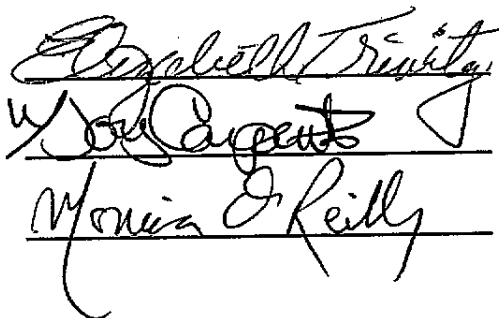 Elizabeth Trinity
Carpenter
Monica O'Reilly